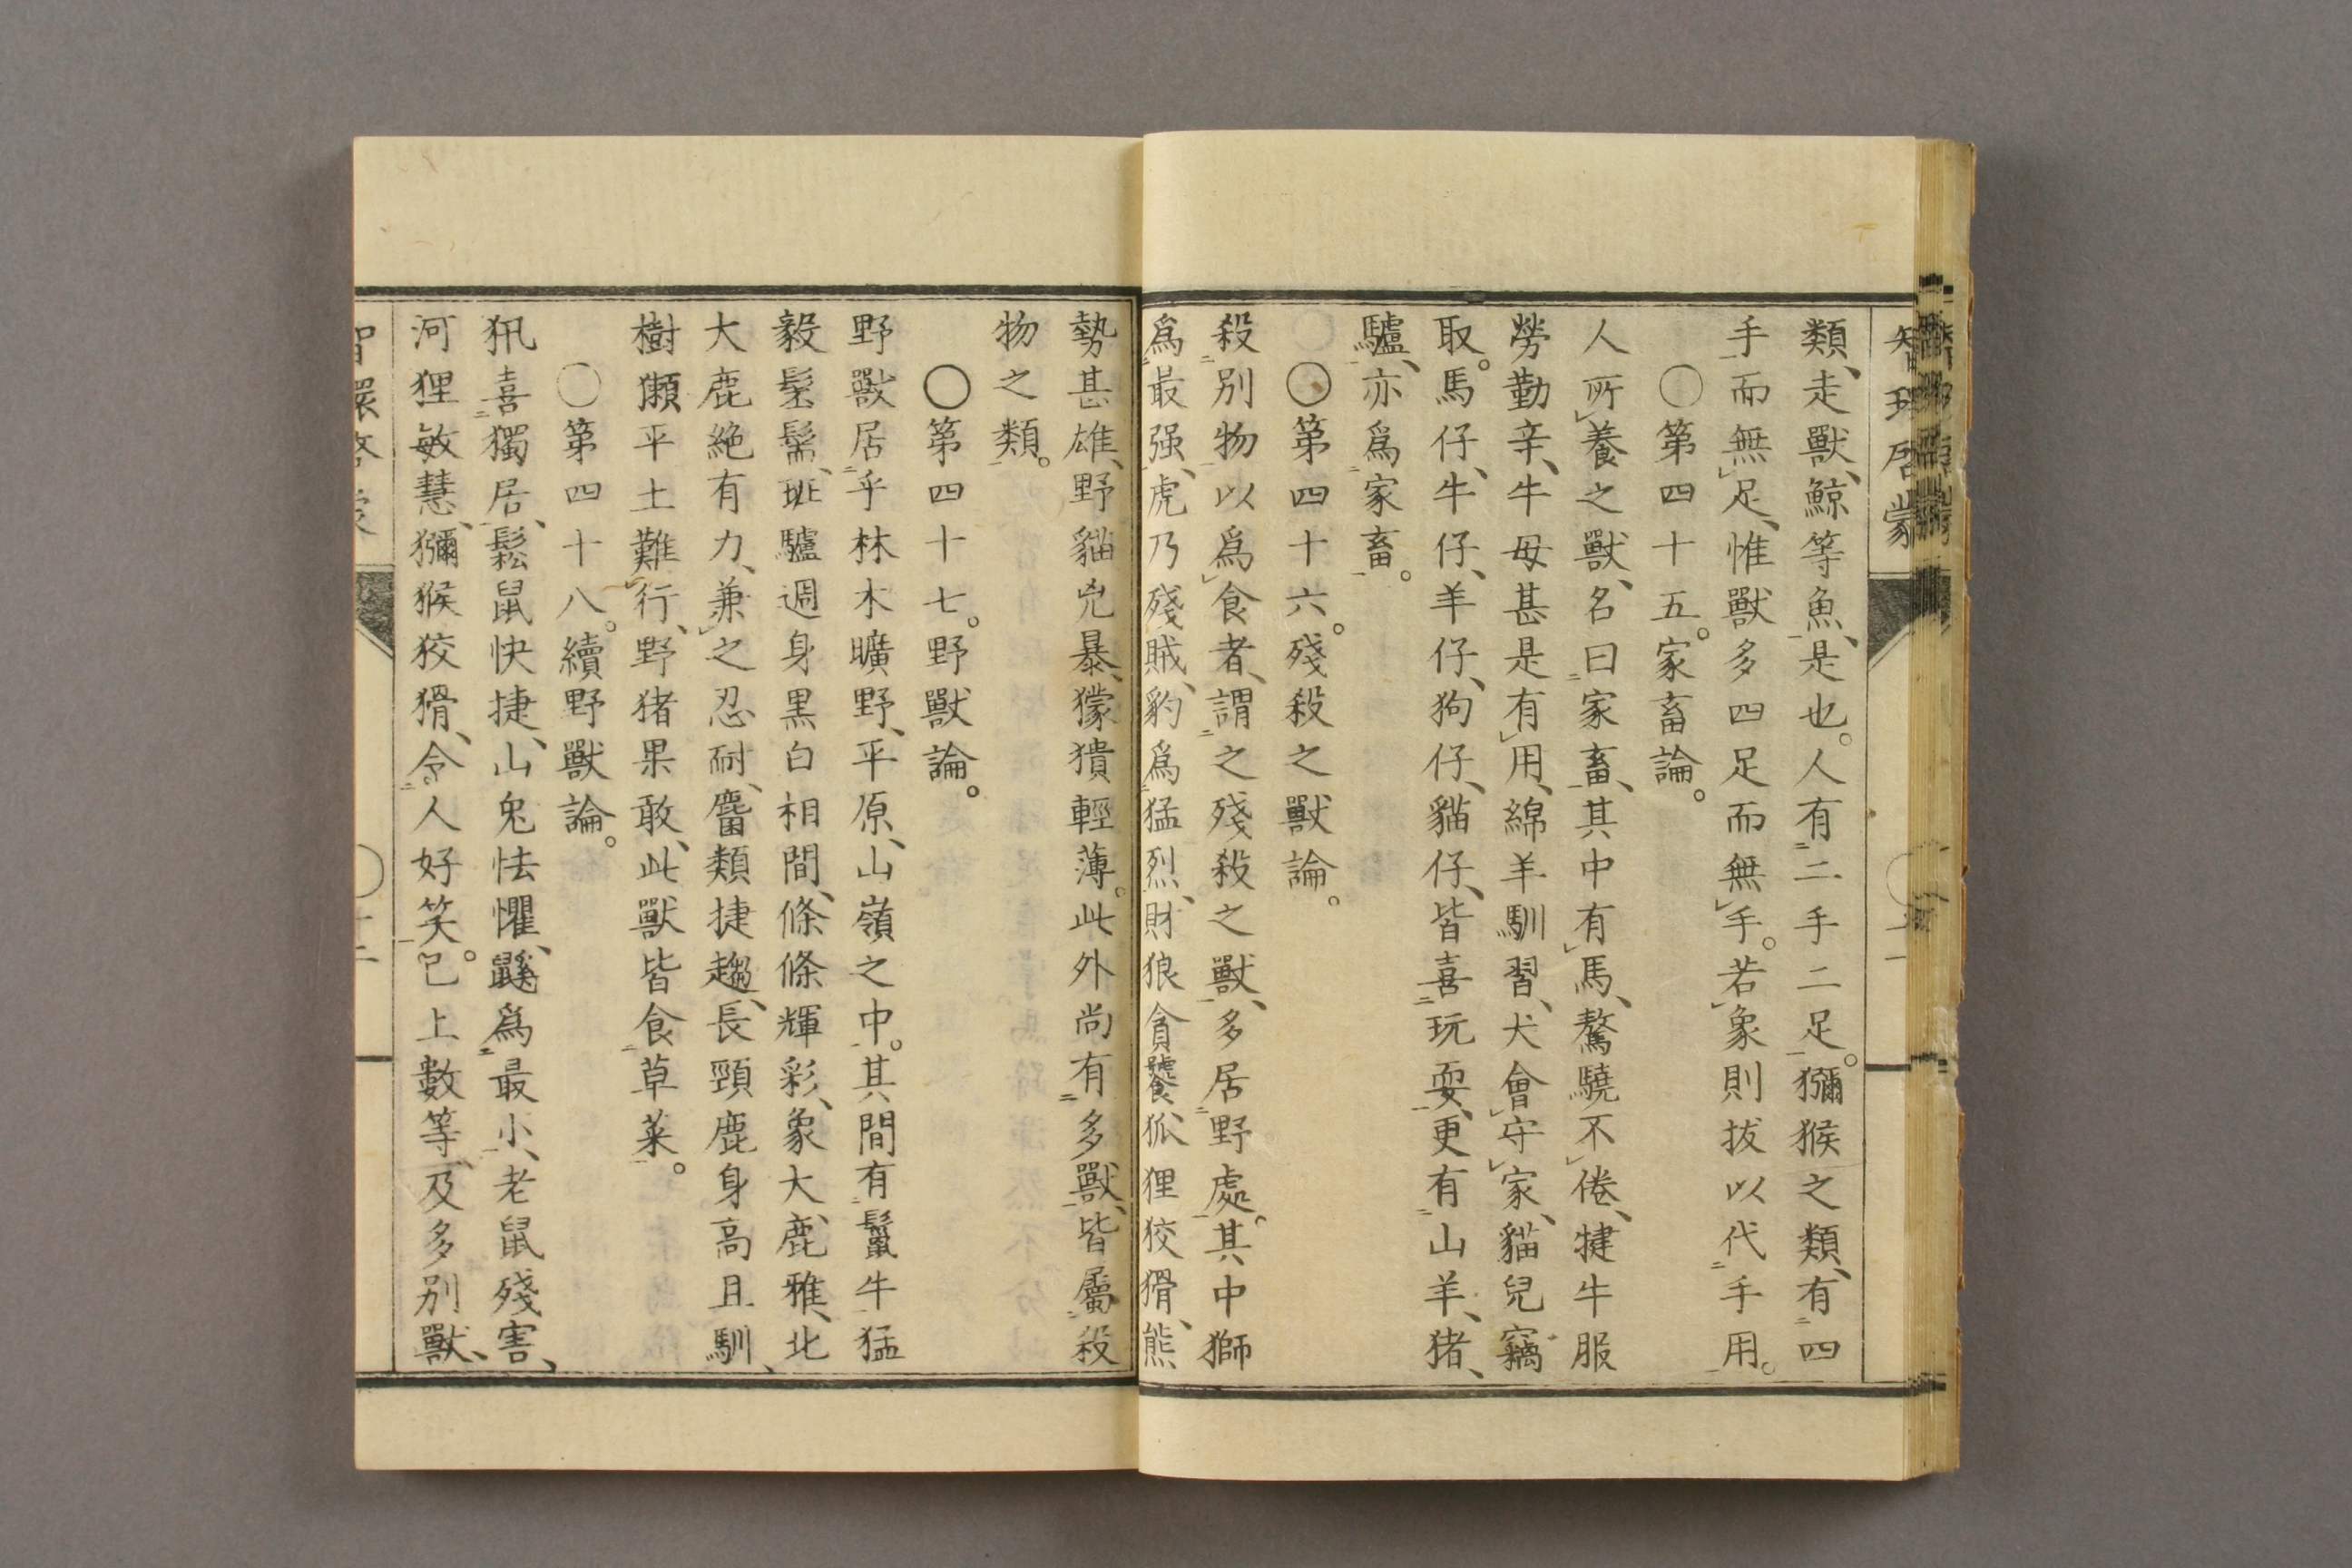 智環啓蒙
類、走獸、鯨等魚、是也。人有二手二足。獼猴之類、有四
手而無足、惟獸多四足而無手。若象則拔以代手用。
〇第四十五。家畜論。
人所養之獸、名曰家畜、其中有馬、驁驍不倦、犍牛服
勞勤辛、牛母甚是有用、綿羊馴習、犬會守家、貓兒竊
取。馬仔、牛仔、羊仔、狗仔、貓仔、皆喜玩耍、更有山羊、猪、
驢、亦爲家畜。
〇第四十六。殘殺之獸論。
殺別物以爲食者、謂之殘殺之獸、多居野處。其中獅
爲最强、虎乃殘賊、豹爲猛烈、財狼貪饕、狐狸狡猾、熊
勢甚雄、野貓兇暴、獴獚輕薄。此外尚有多獸、皆屬殺
物之類。
〇第四十七。野獸論。
野獸居乎林木曠野、平原、山嶺之中。其間有鬣牛猛
毅髬髵、斑驢週身黑白相間、條條輝彩、象大、鹿雅、北
大鹿絶有力、兼之忍耐、麕類捷趨、長頸鹿身高且馴、
樹獺平土難行、野猪果敢、此獸皆食草菜。
〇第四十八。續野獸論。
犼喜獨居、鬆鼠快捷、山兔怯懼、鼷爲最小、老鼠殘害、
河狸敏慧、獼猴狡猾、令人好笑。已上數等、及多別獸、